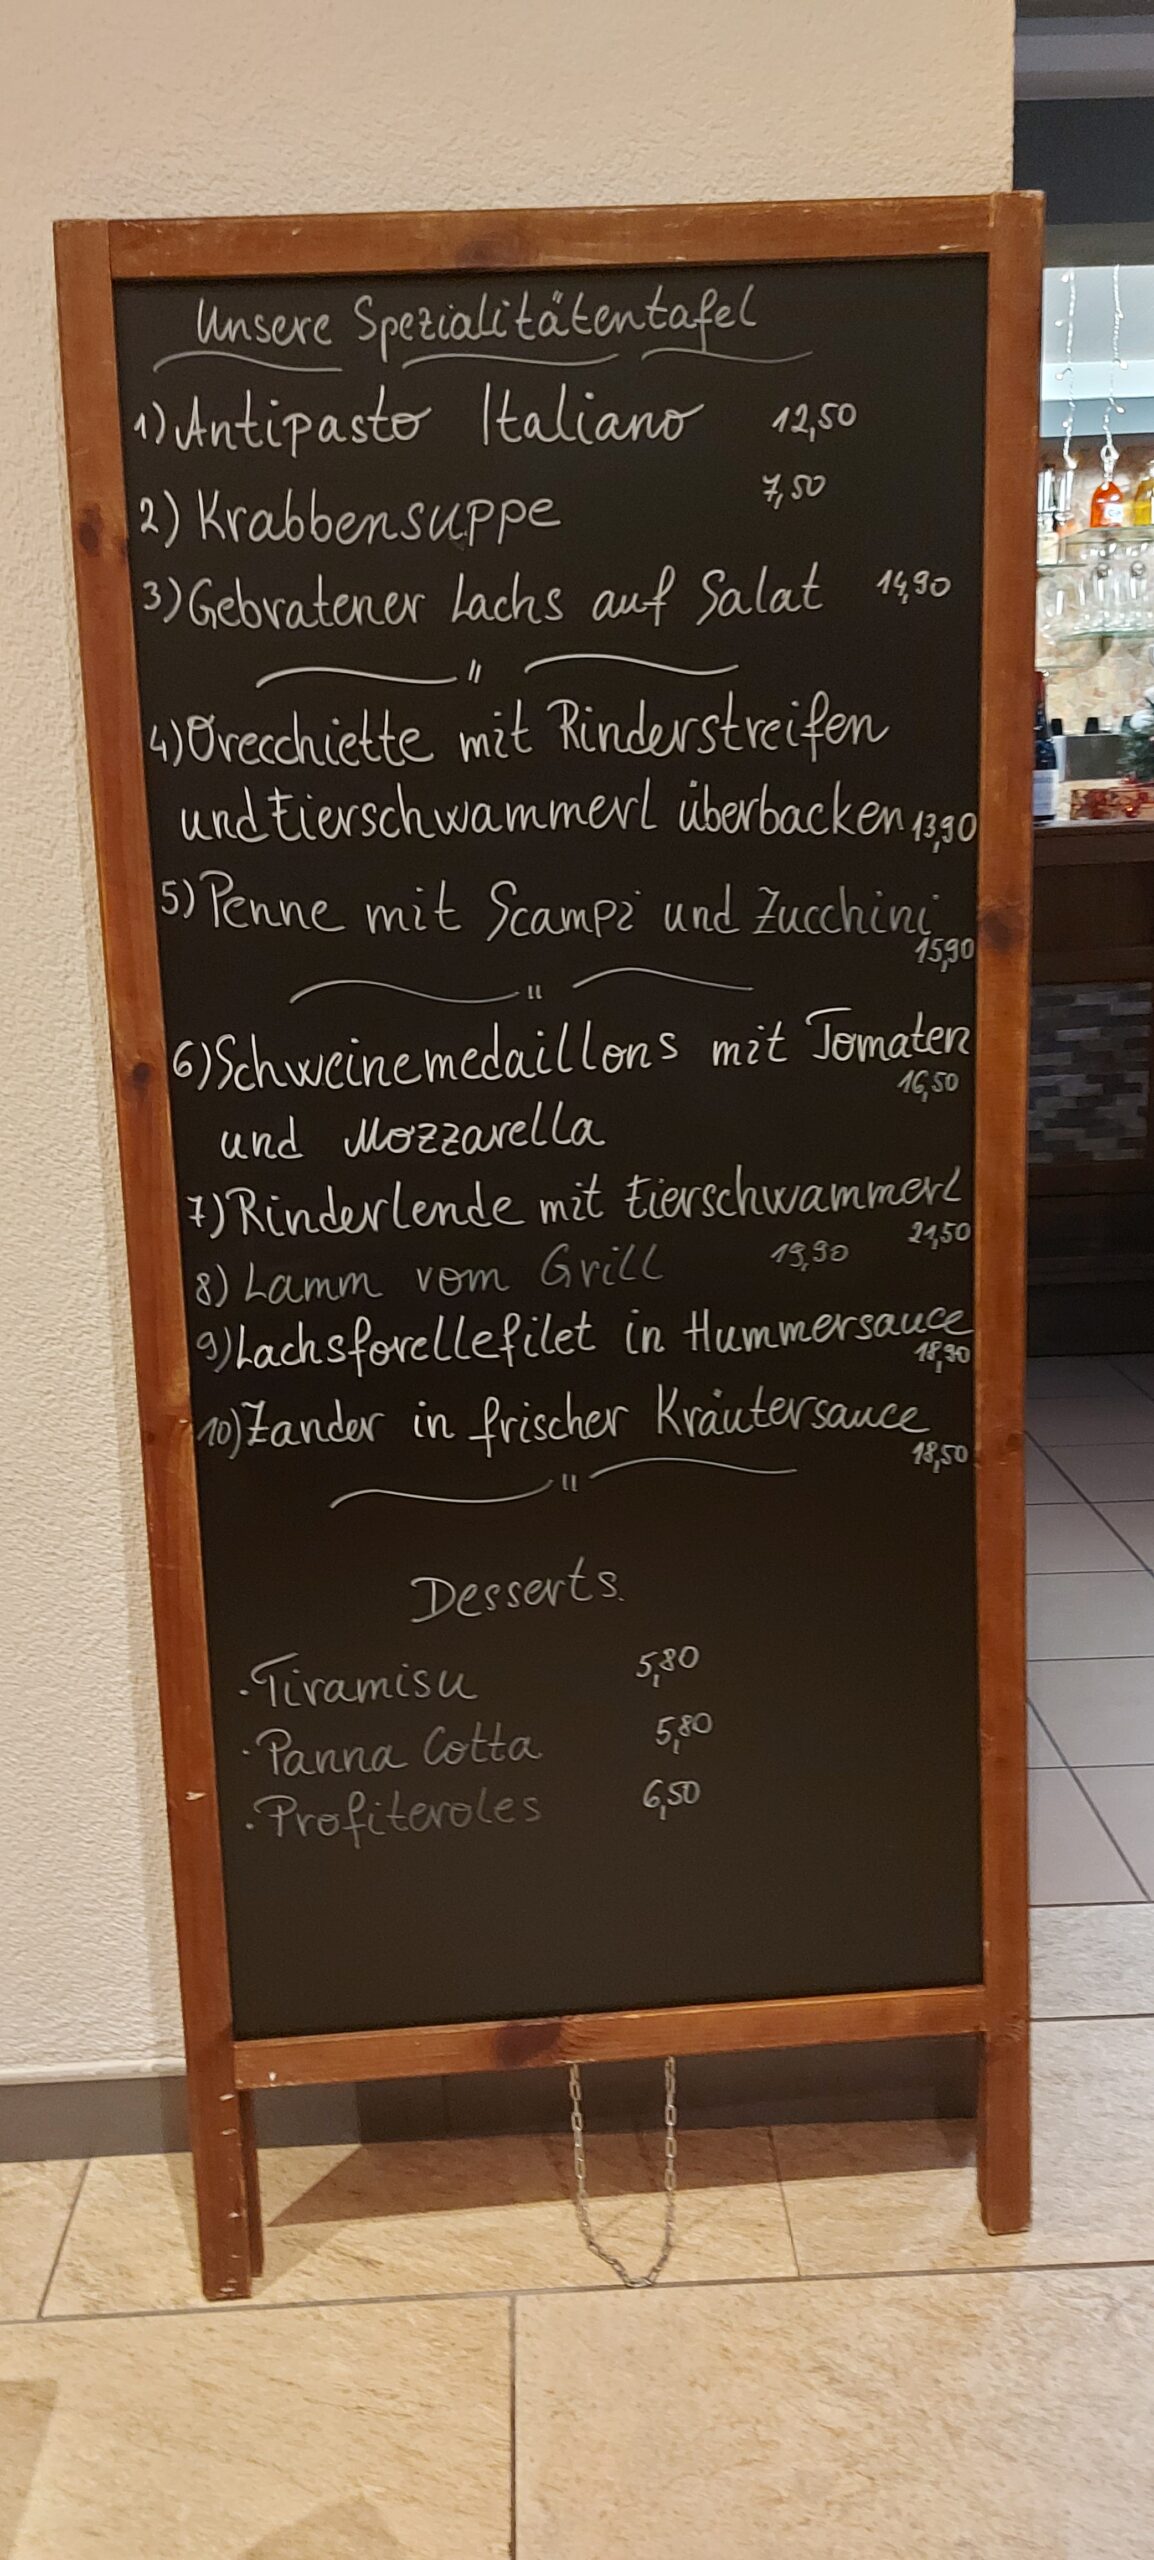 Unsere Spezialitätentafel
1) Antipasto Italiano 12,50
2) Krabbensuppe 7,50
3) Gebratener Lachs auf Salat 14,90
4) Orecchiette mit Rinderstreifen
und tierschwammerl überbacken 13,90
5) Penne mit Scampi und Zucchini
15,90
6) Schweinemedaillons mit Tomaten
16,50
und Mozzarella
7) Rinderlende mit tierschwammerl
21,50
8) Lamm vom Grill 19,90
9) Lachsforellefilet in Hummersauce
18,90
10) Zander in frischer Kräutersauce
18,50
Desserts
· Tiramisu 5,80
· Panna Cotta 5,80
· Profiteroles 6,50